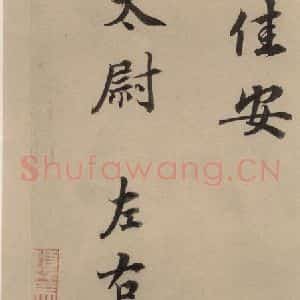 佳安
太尉 左右
Shufawang.CN